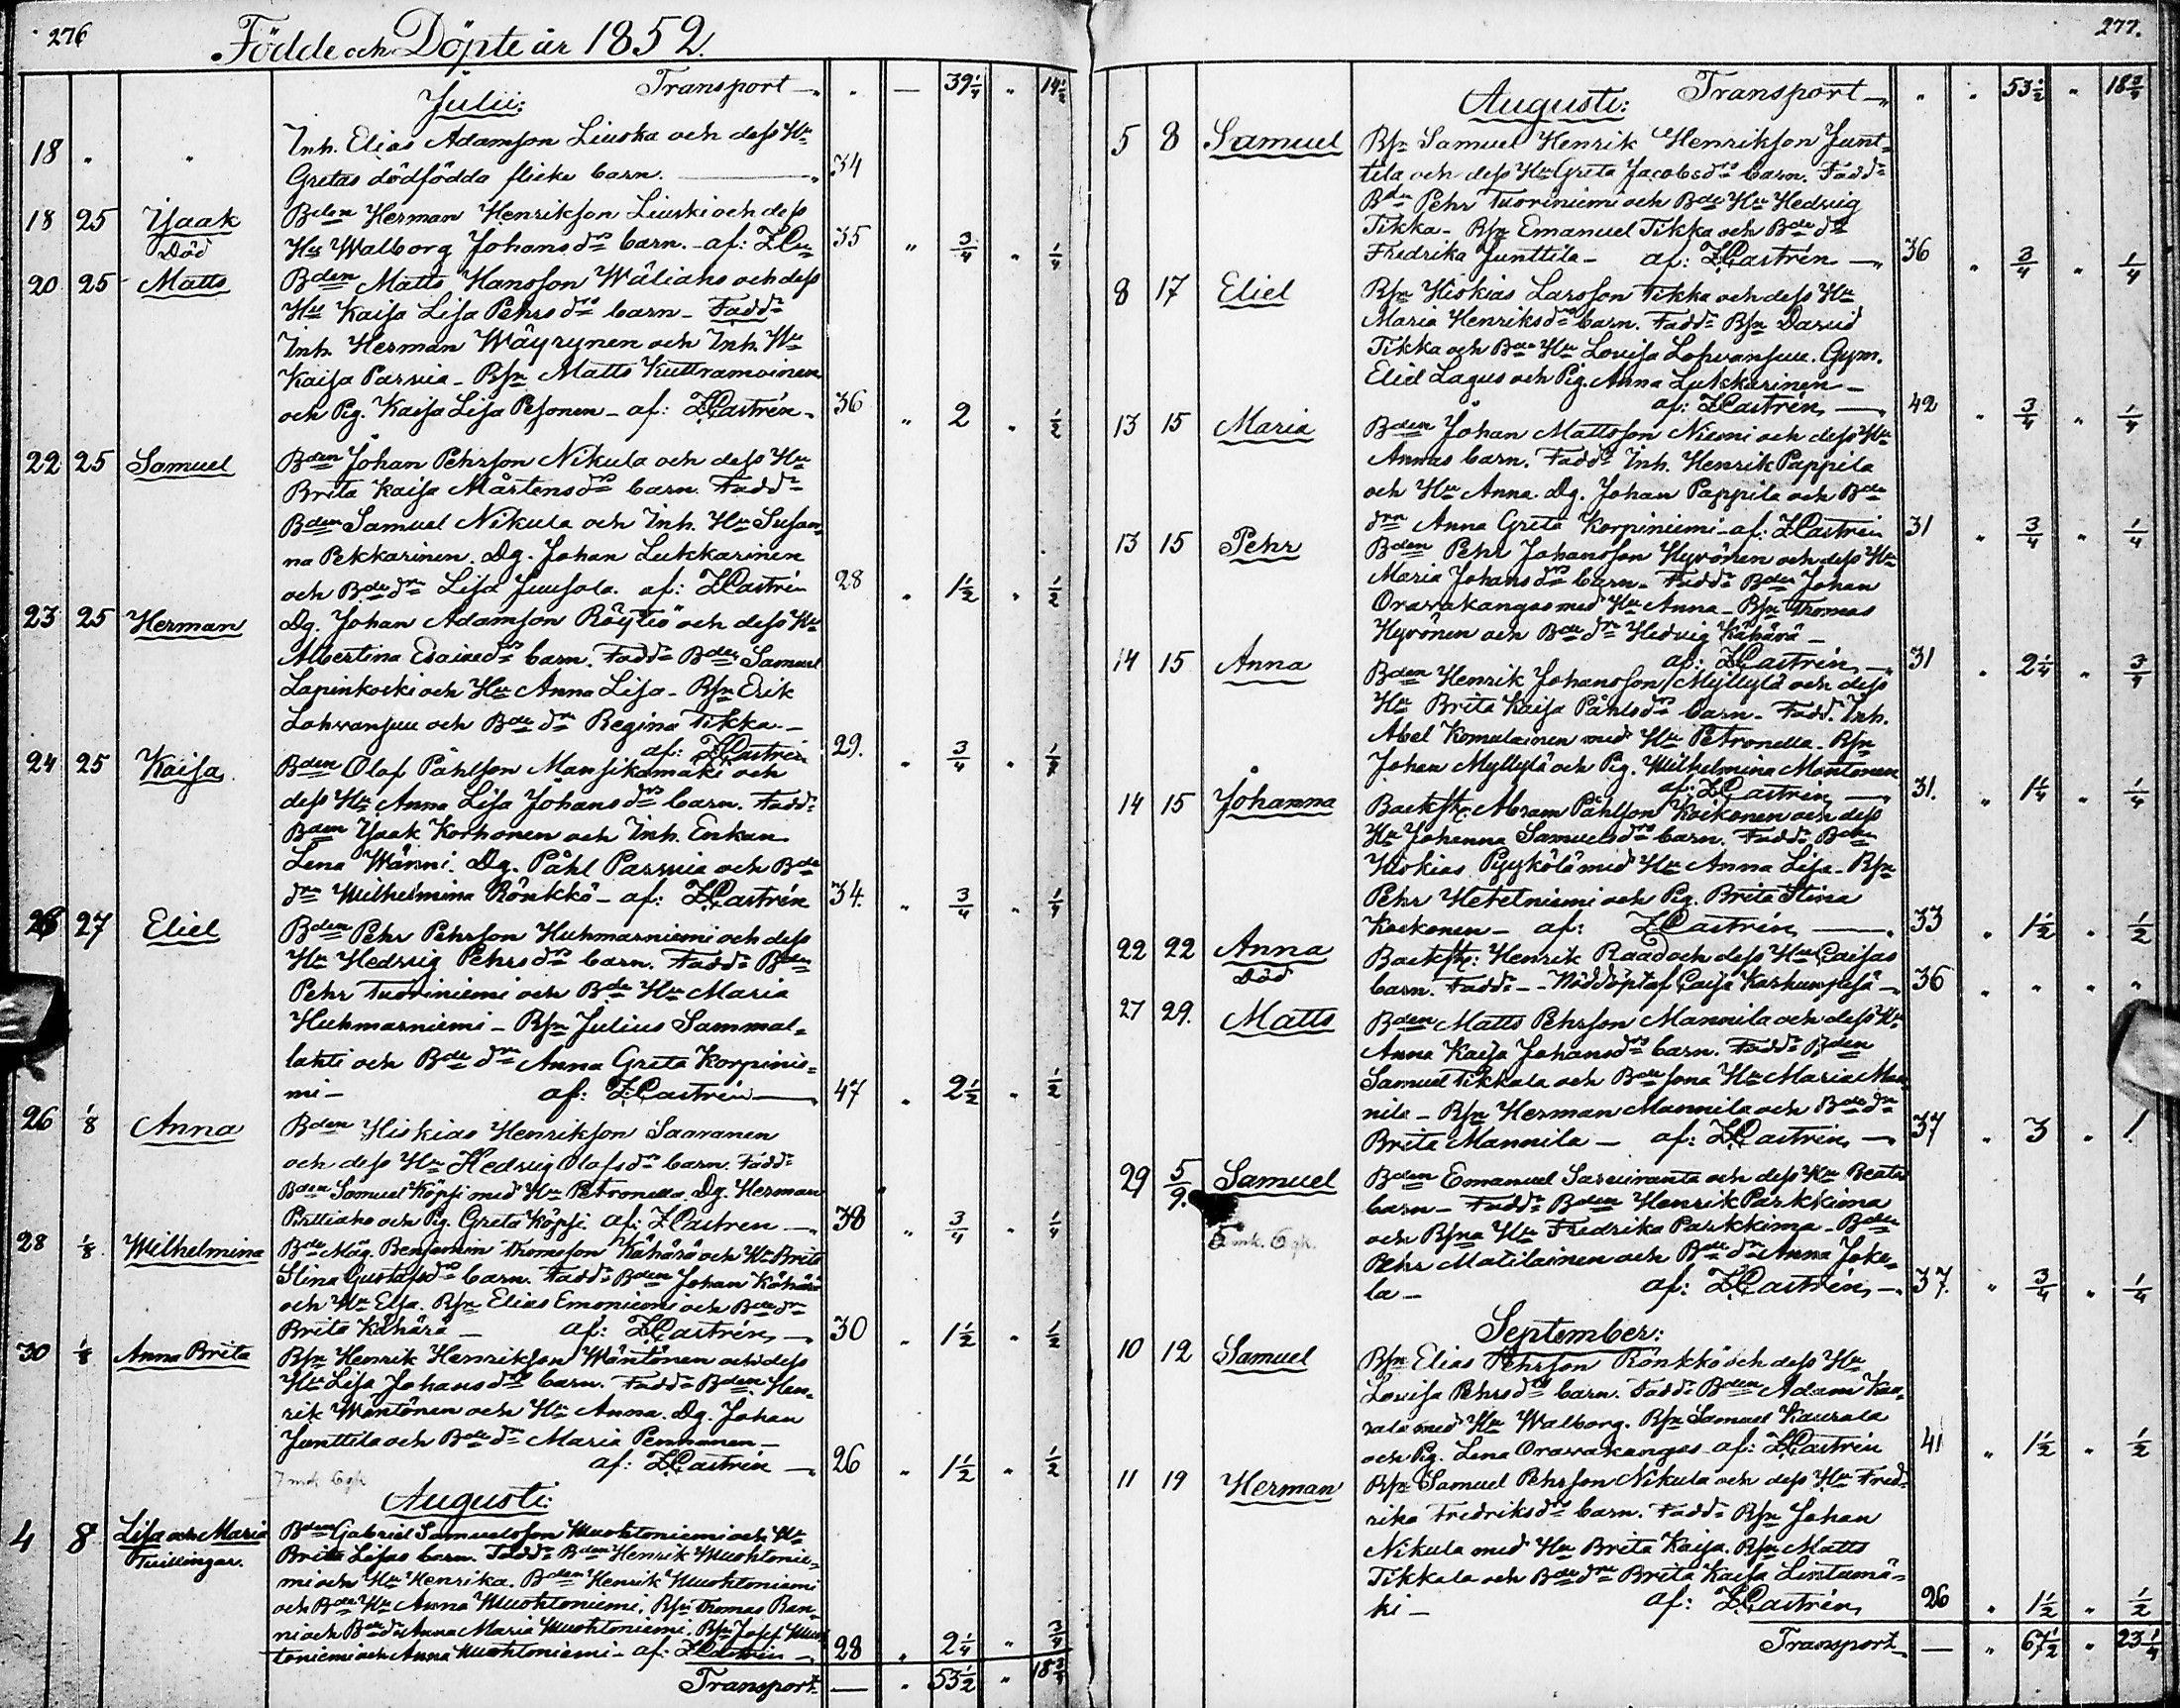 276
Födde och Döpte år 1852.
Julii: Transport — 39¼ 14½
18 " " Inh. Elias Adamsson Liuska och dess Hu
Gretas dödfödda flicke barn. 34
18 25 Isaak Bden Herman Henriksson Liuski och dess
Död Hu Walborg Johansdrs barn. af: ZCn 35 " ¾ " ¼
20 25 Matts Bden Matts Hansson Wäliaho och dess
Hu Kaisa Lisa Pehrsdrs barn – Fadd:
Inh. Herman Wäyrynen och Inh. Hu
Kaisa Parvia – Bsn Matts Kuttramoinen
och Pig. Kaisa Lisa Pesonen – af: ZCastrén 36 " 2 " ½
22 25 Samuel Bden Johan Pehrsson Nikula och dess Hu
Brita Kaisa Mårtensdrs barn. Fadd:
Bden Samuel Nikula och Inh. Hu Susan-
na Pekkarinen. Dg. Johan Lukkarinen
och Bde dr Lisa Juusola. af: ZCastrén 28 " 1½ " ½
23 25 Herman Dg. Johan Adamsson Röytiö och dess Hu
Albertina Esaiædrs barn. Fadd: Bden Samuel
Lapinkoski och Hu Anna Lisa – Bsn Erik
Lohvansuu och Bde dr Regina Tikka. –
af: ZCastrén 29. " ¾ " ¼
24 25 Kaisa Bden Olof Påhlsson Mansikamäki och
dess Hu Anna Lisa Johansdrs barn. Fadd:
Bden Isaak Korhonen och Inh. Enkan
Lena Wänni. Dg. Påhl Parvia och Bde
dr Wilhelmina Rönkkö – af: ZCastrén 34. " ¾ " ¼
26 27 Eliel Bden Pehr Pehrsson Huhmarniemi och dess
Hu Hedvig Pehrsdrs barn. Fadd: Bden
Pehr Tuoriniemi och Bde Hu Maria
Huhmarniemi – Bsn Julius Sammal-
lahti och Bde dr Anna Greta Korpinie-
mi – af: ZCastrén 47 " 2½ " ½
26 1/8 Anna Bden Hiskias Henriksson Saaranen
och dess Hu Hedvig Olofsdrs barn. Fadd:
Bden Samuel Köpsi med Hu Petronella. Dg. Herman
och Pig. Greta Köpsi af: ZCastrén 38 " ¾ " ¼
28 1/8 Wilhelmina Bde Måg. Benjamin Thomsson Kähärä och Hu Brita
Stina Gustafsdrs barn. Fadd: Bden Johan Kähärä
och Hu Elsa. Bsn Elias Emoniemi och Bde dr
Brita Kähärä – af: ZCastrén 30 " 1½ " ½
30 1/8 Anna Brita Bsn Henrik Henriksson Wäntönen och dess
Hu Lisa Johansdrs barn. Fadd: Bden Hen-
rik Wäntönen och Hu Anna. Dg. Johan
Junttila och Bde dr Maria Pennanen –
af: ZCastrén 26 " 1½ " ½
7 mk 6 gk
Augusti:
4 8 Lisa och Maria Bden Gabriel Samuelsson Muohtoniemi och Hu
Tvillingar. Brita Lisas barn. Fadd: Bden Henrik Muohtonie-
mi och Hu Henrika. Bden Henrik Muohtoniemi
och Bde Hu Anna Muohtoniemi. Bsn Thomas Ran-
ni och Bde dr Anna Maria Muohtoniemi. Bsn Josef Muoh
toniemi och Anna Muohtoniemi – af: ZCastrén 28 " 2¼ " ¾
Transport — " 53½ " 18¾
277.
Augusti: Transport " " 53½ " 18¾
5 8 Samuel Bsn Samuel Henrik Henriksson Junt-
tila och dess Hu Greta Jacobsdrs barn. Fadd:
Bden Pehr Tuoriniemi och Bde Hu Hedvig
Tikka – Bsn Emanuel Tikka och Bde dr
Fredrika Junttila – af: ZCastrén 36 " ¾ " ¼
8 17 Eliel Bsn Hiskias Larsson Tikka och dess Hu
Maria Henriksdrs barn. Fadd: Bsn David
Tikka och Bde Hu Lovisa Lohvansuu. Gym.
Eliel Lagus och Pig. Anna Lukkarinen –
af: ZCastrén 42 " ¾ " ¼
13 15 Maria Bden Johan Mattsson Niemi och dess Hu
Annas barn. Fadd: Inh. Henrik Pappila
och Hu Anna. Dg. Johan Pappila och Bde
drn Anna Greta Korpiniemi – af: ZCastrén 31 " ¾ " ¼
13 15 Pehr Bden Pehr Johansson Hyvönen och dess Hu
Maria Johansdrs barn – Fadd: Bden Johan
Oravakangas med Hu Anna – Bsn Thomas
Hyvönen och Bde dr Hedvig Kähärä –
af: ZCastrén 31 " 2¼ " ¾
14 15 Anna Bden Henrik Johansson Myllylä och dess
Hu Brita Kaisa Påhlsdrs barn – Fadd: Inh.
Abel Komulainen med Hu Petronella. Bsn
Johan Myllylä och Pig. Wilhelmina Mantonen
af: ZCastrén 31. " 1¼ " ¼
14 15 Johanna Backstr. Abram Påhlsson Koikonen och dess
Hu Johanna Samuelsdrs barn. Fadd: Bden
Hiskias Pyykölä med Hu Anna Lisa – Bsn
Pehr Hetelniemi och Pig. Brita Stina
Koikonen – af: ZCastrén 33 " 1½ " ½
22 22 Anna Backstr: Henrik Raad och dess Hu Caisas
Död barn. Fadd: – Nöddöpt af Caisa 36 " " " "
27 29. Matts Bden Matts Pehrsson Mannila och dess Hu
Anna Kaisa Johansdrs barn. Fadd: Bden
Samuel Tikkala och Bde sona Hu Maria Man
nila – Bsn Herman Mannila och Bde dr
Brita Mannila – af: ZCastrén 37 " 3 " 1
29 5/9. Samuel Bden Emanuel Sarvivanta och dess Hu Beatas
barn – Fadd: Bden Henrik Parkkima
5 mk. 6 gk. och Bsna Hu Fredrika Parkkima – Bden
Pehr Matilainen och Bde dr Anna Joke-
la – af: ZCastrén 37. " ¾ " ¼
September:
10 12 Samuel Bsn Elias Pehrsson Rönkkö och dess Hu
Lovisa Pehrsdrs barn. Fadd: Bden Adam Kau-
rala med Hu Walborg. Bsn Samuel Kaurala
och Pig. Lena Oravakangas af: ZCastrén 41 " 1½ " ½
11 19 Herman Bsn Samuel Pehrsson Nikula och dess Hu Fred-
rika Fredriksdrs barn. Fadd: Bsn Johan
Nikula med Hu Brita Kaisa. Bsn Matts
Tikkala och Bde dr Brita Kaisa Lintumä-
ki – af: ZCastrén 26 " 1½ " ½
Transport — " 67½ " 23¼